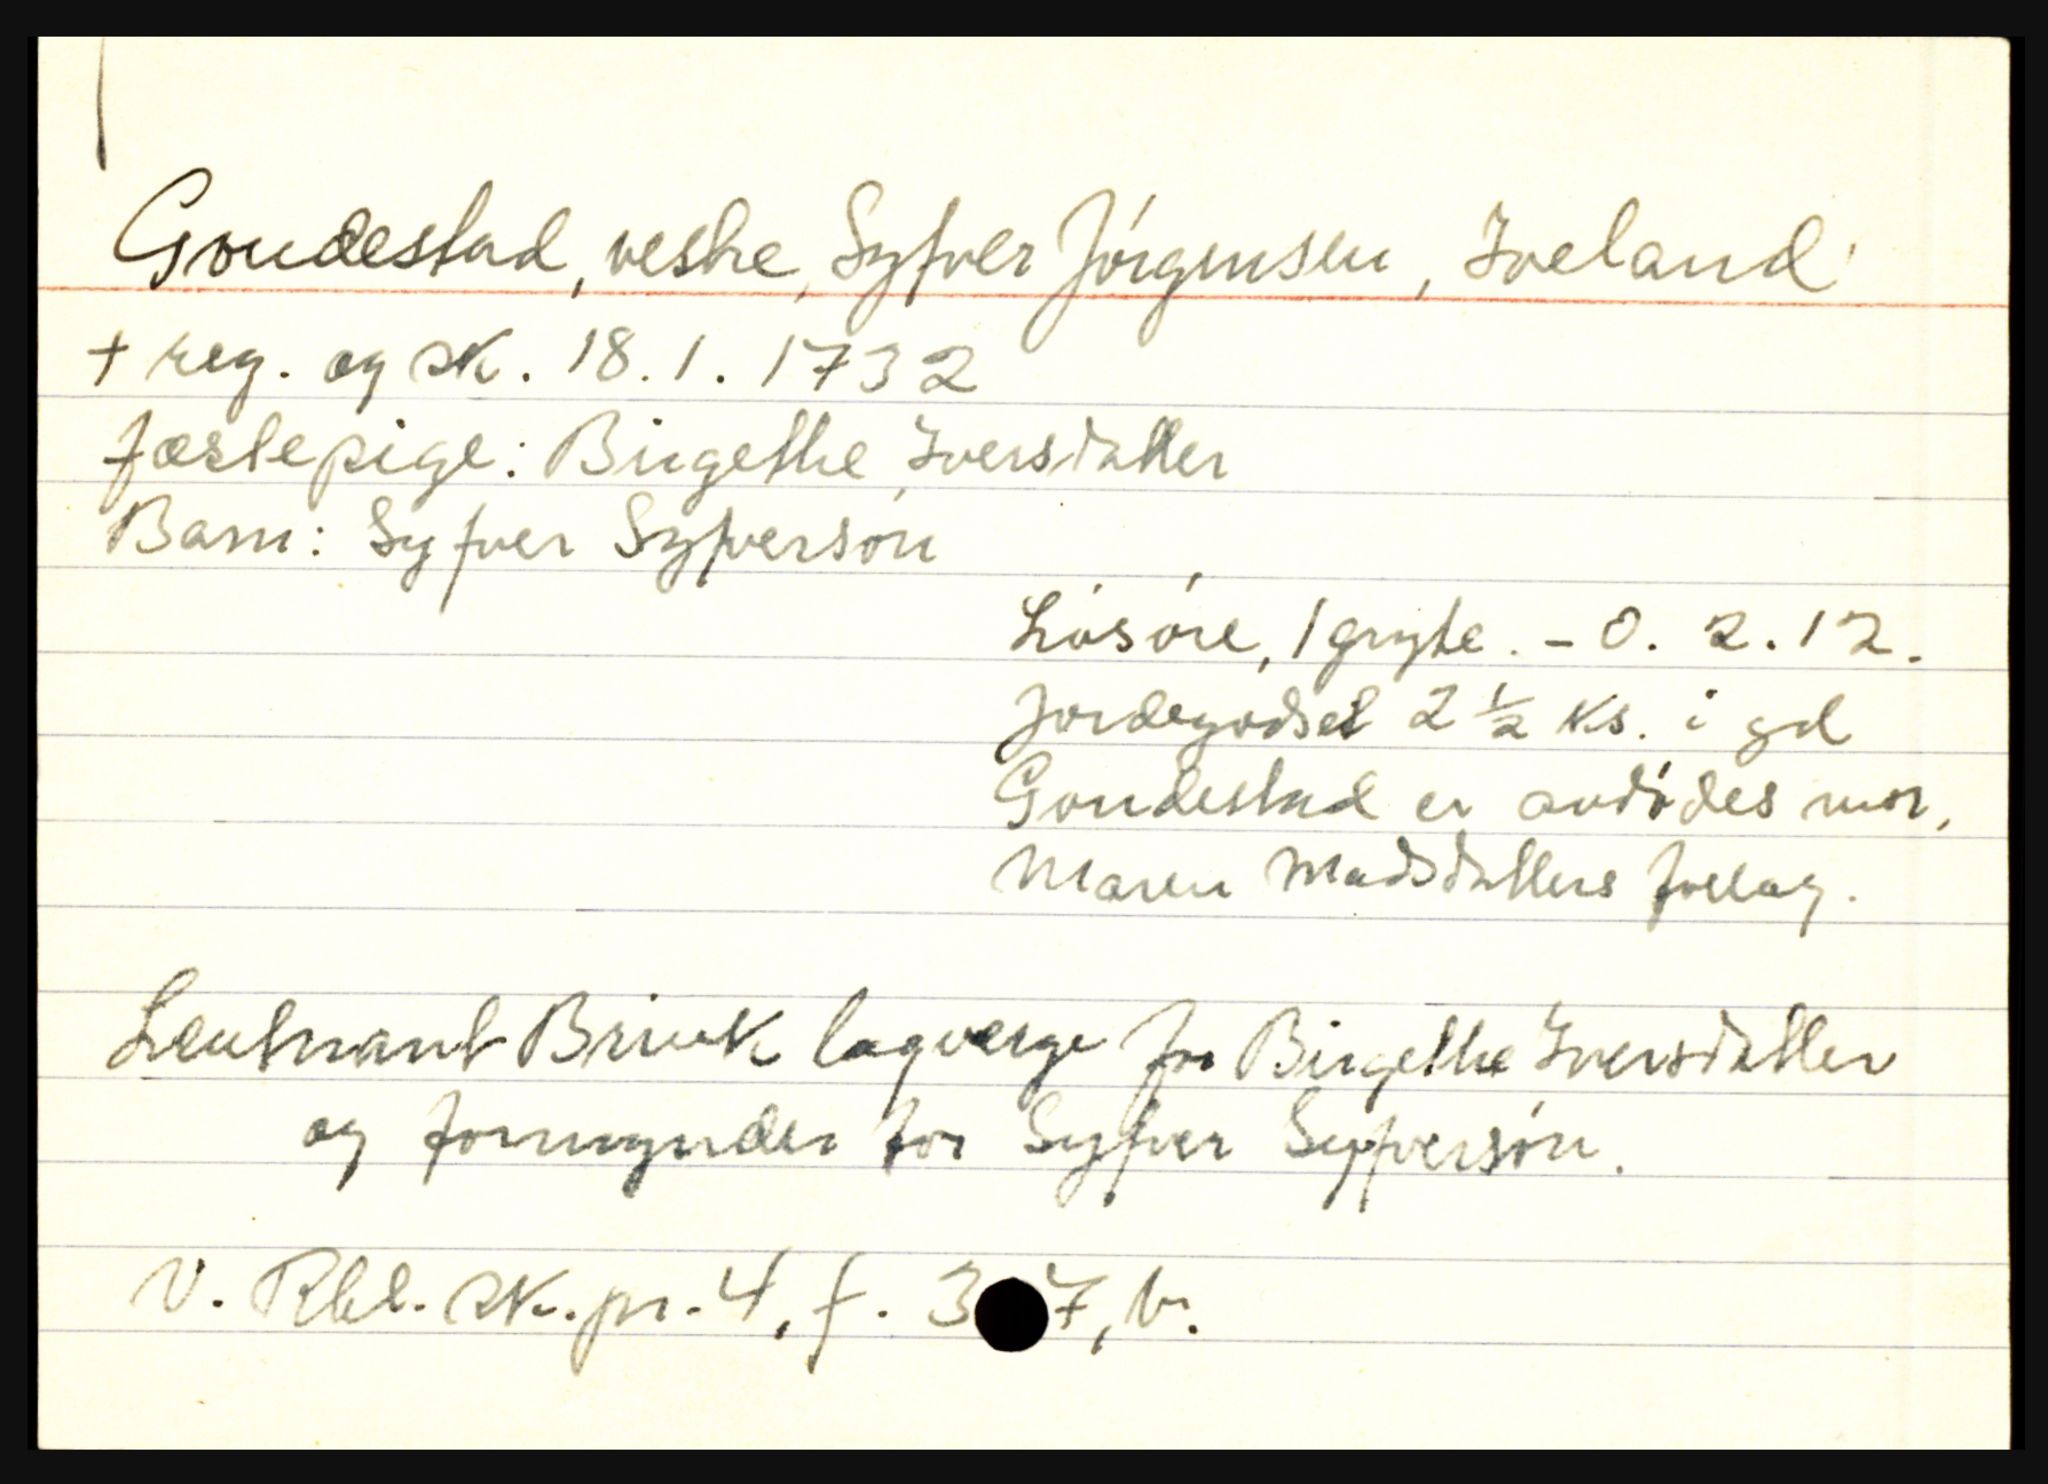 Gondestad, vestre, Syfver Jörgensen, Iveland
+ reg. og sk. 18.1.1732
Fæstepige: Birgethe Iversdatter
Barn: Syfver Syfversön
Lösöre, 1 gryte. - 0. 2. 12.
Jordegodset 2 1/2 ks. i gd
Gondestad er avdödes mor,
Maren Madsdatters
Leutnant Brink lagverge for Birgethe Iversdatter
og formynder for Syfver Syfversön.
V. Rbl. sk.pr. 4, f. 3 7, b.